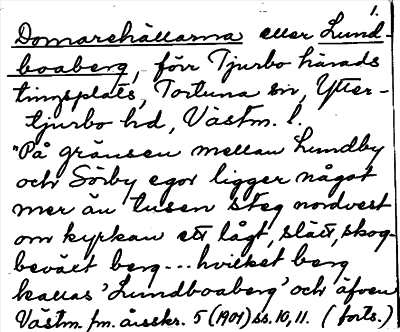 1.
Domarehällarna eller Lund-
boaberg, förr Tjurbo härads
tingsplats, Tortuna sn, Ytter-
tjurbo hd, Västm. l.
"På gränsen mellan Lundby
och Sörby egor ligger något
mer än tusen steg nordvest
om kyrkan ett lågt, slätt, skog-
beväxt berg... hvilket berg
kallas 'Lundboaberg' och äfven
Västm. fm. årsskr. 5 (1901) ss. 10, 11. (forts.)